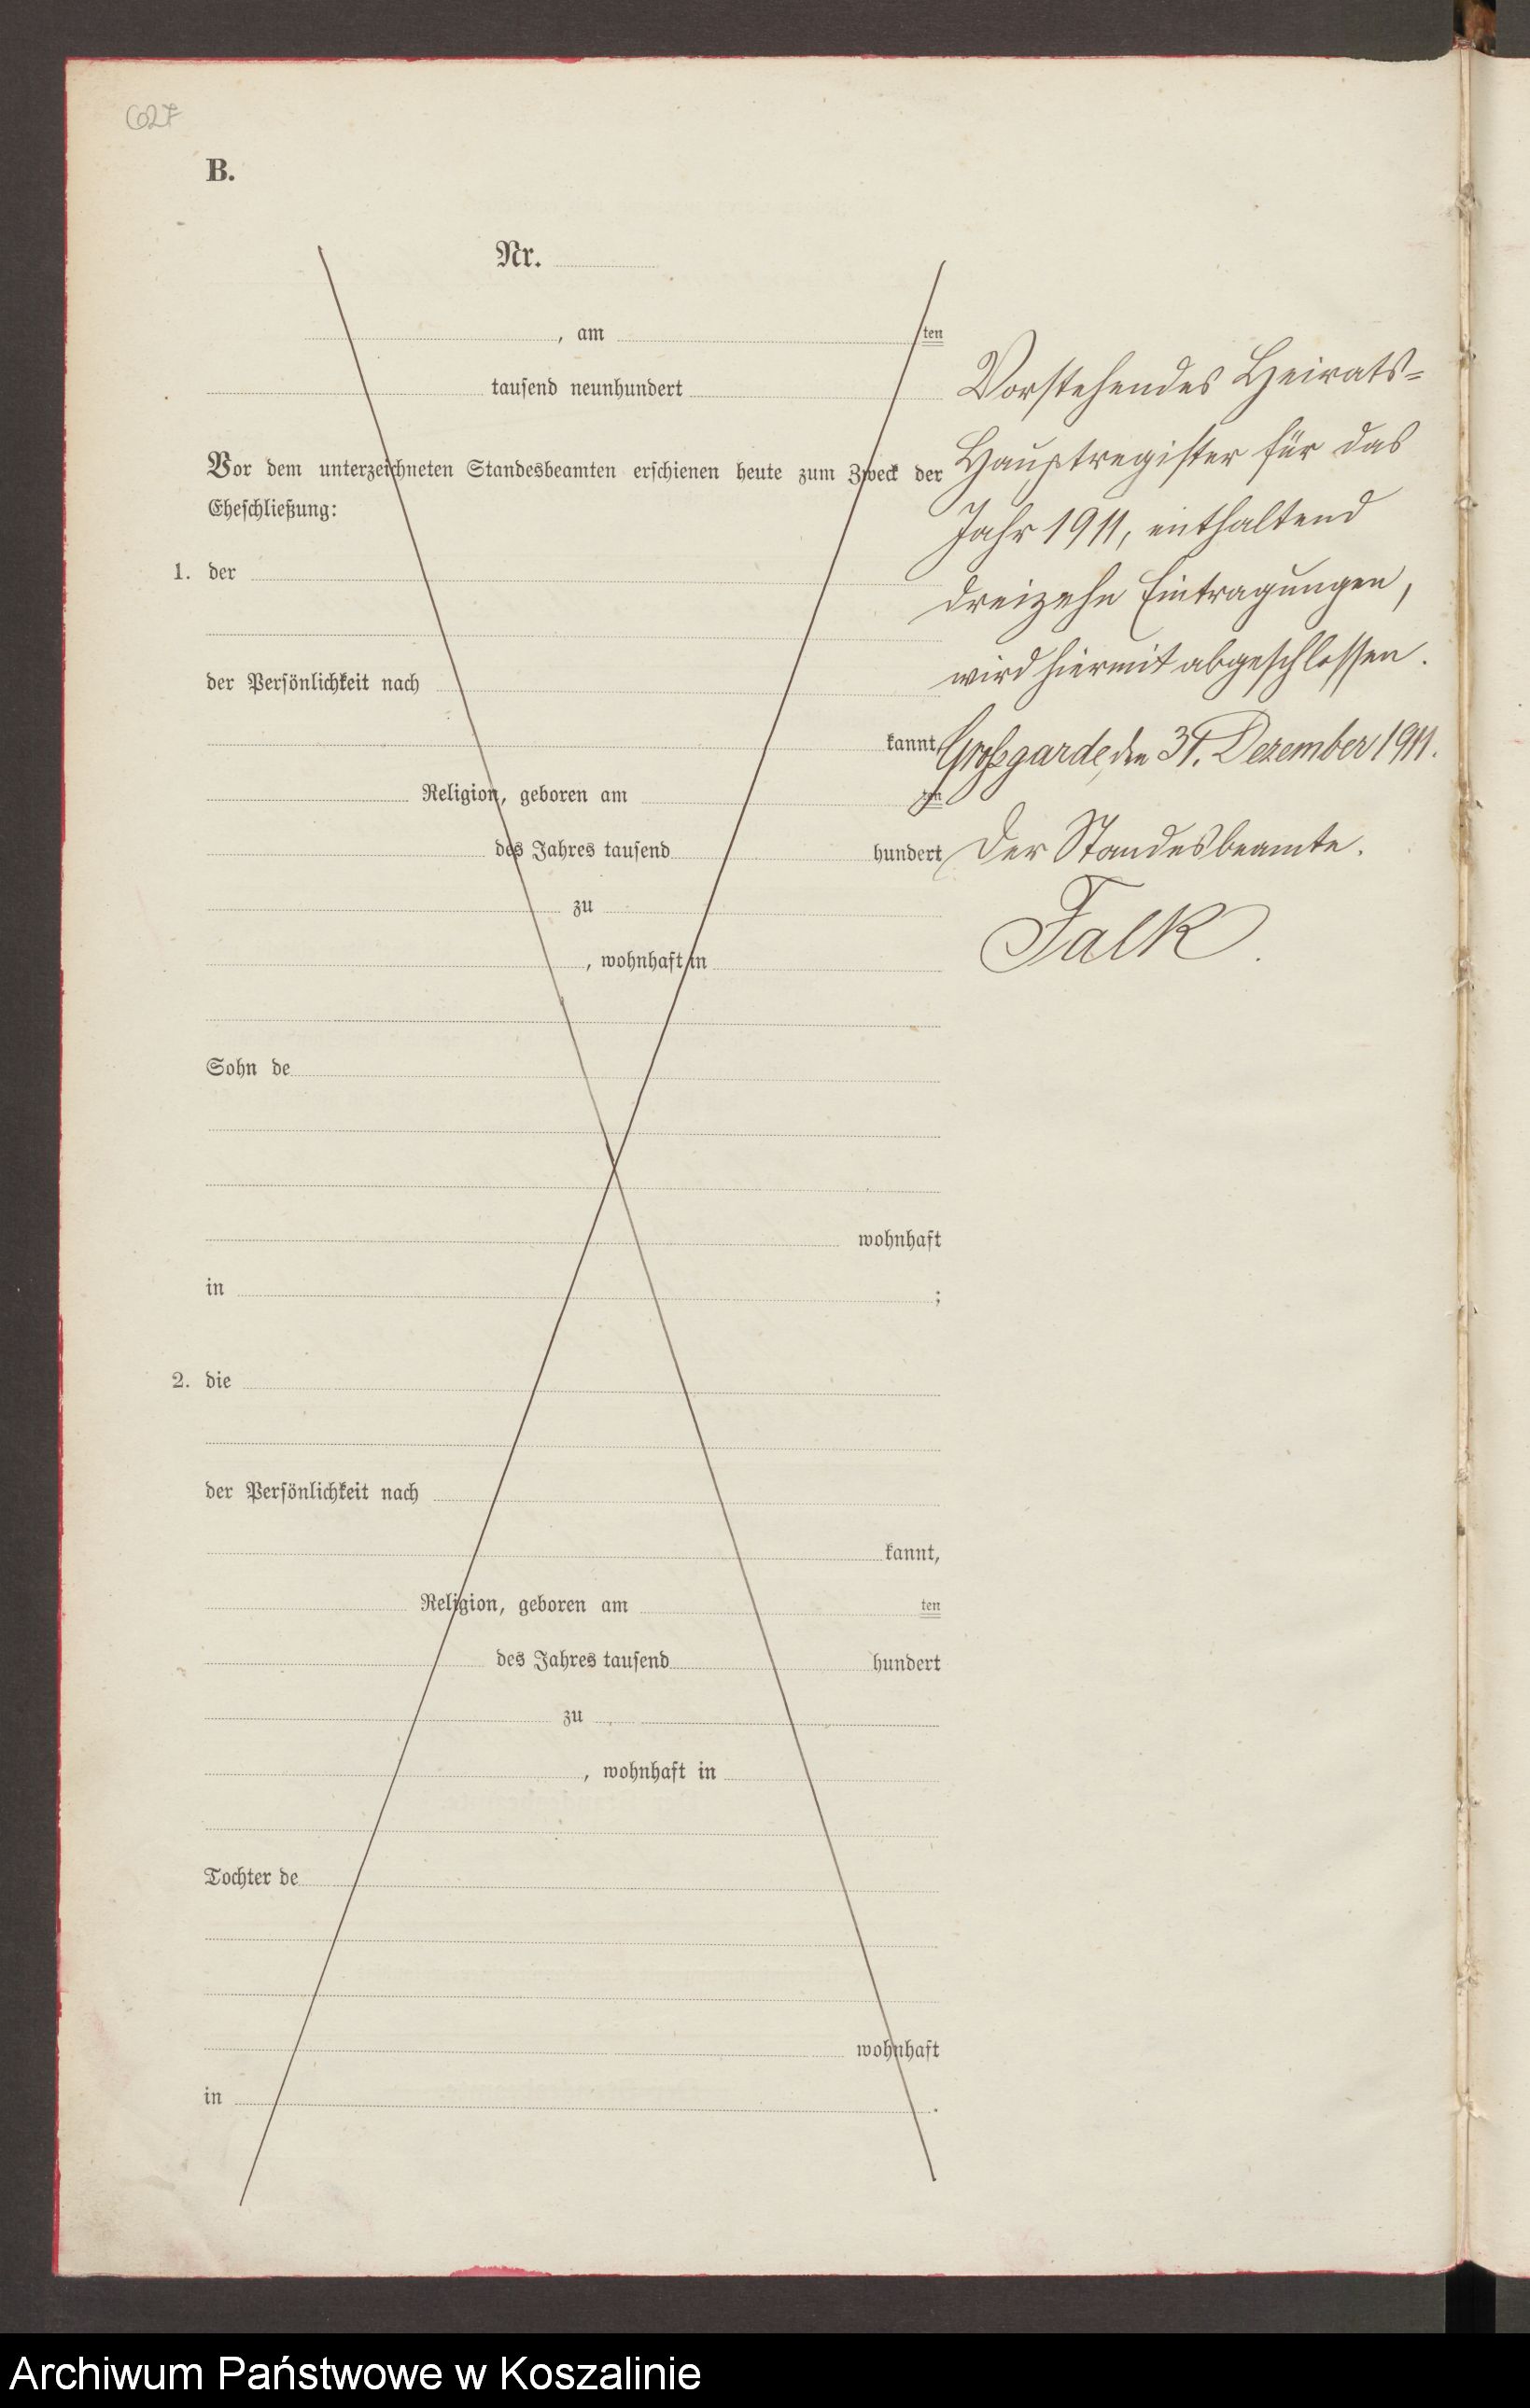 627
B.
Nr.
, am ten
tausend neunhundert
Vor dem unterzeichneten Standesbeamten erschienen heute zum Zweck der
Eheschließung:
1. der
der Persönlichkeit nach
kannt,
Religion, geboren am ten
des Jahres tausend hundert
zu
, wohnhaft in
Sohn de
wohnhaft
in ;
2. die
der Persönlichkeit nach
kannt,
Religion, geboren am ten
des Jahres tausend hundert
zu
, wohnhaft in
Tochter de
wohnhaft
in .
Vorstehendes Heirats-
Hauptregister für das
Jahr 1911, enthaltend
dreizehn Eintragungen,
wird hiermit abgeschlossen.
Großgarde, den 31. Dezember 1911.
Der Standesbeamte.
Falk.
Archiwum Państwowe w Koszalinie